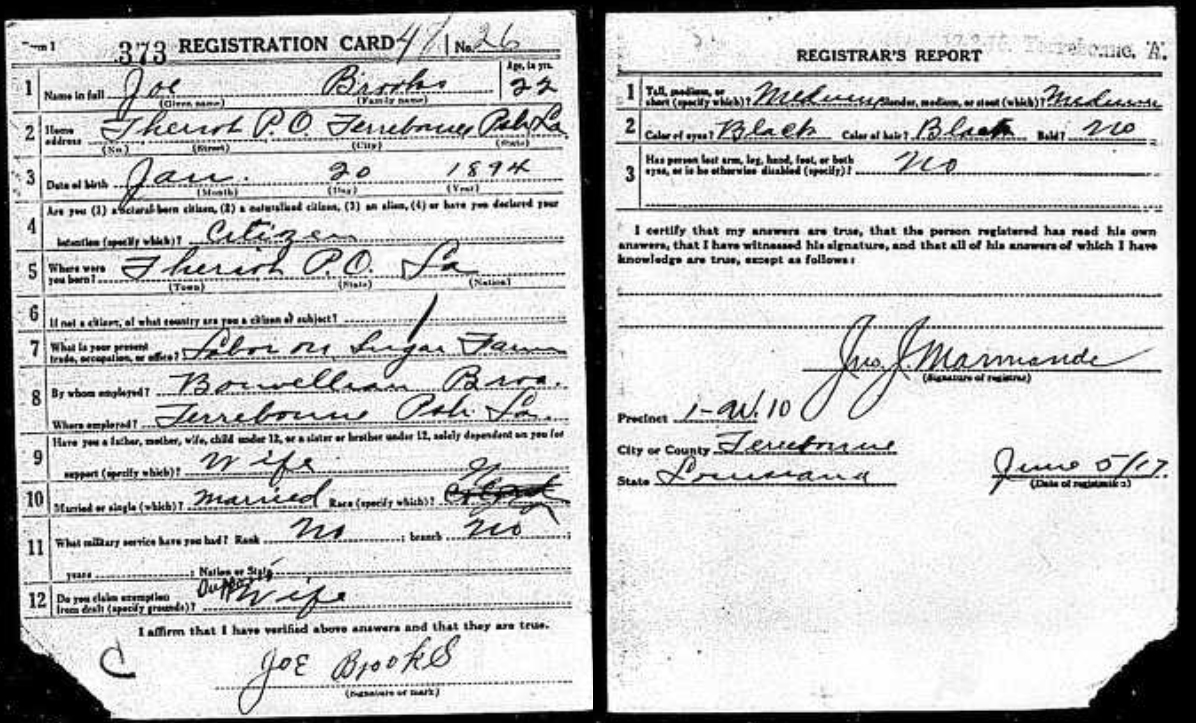 Form 1 373 REGISTRATION CARD 47 No. 26
1 Name in full Joe Brooks Age, in yrs. 22
(Given name) (Family name)
2 Home address Theriot P.O. Terrebonne Psh La
(No.) (Street) (City) (State)
3 Date of birth Jan. 20 1894
(Month) (Day) (Year)
Are you (1) a natural-born citizen, (2) a naturalized citizen, (3) an alien, (4) or have you declared your
4 intention (specify which)? Citizen
5 Where were you born? Theriot P.O. La
(Town) (State) (Nation)
6 If not a citizen, of what country are you a citizen or subject?
7 What is your present trade, occupation, or office? Labor on Sugar Farm
8 By whom employed? Bros.
Where employed? Terrebonne Psh. La.
Have you a father, mother, wife, child under 12, or a sister or brother under 12, solely dependent on you for
9 support (specify which)? Wife
10 Married or single (which)? Married Race (specify which)?
11 What military service have you had? Rank No ; branch No ;
years ; Nation or State
12 Do you claim exemption from draft (specify grounds)? Support Wife
I affirm that I have verified above answers and that they are true.
C
Joe Brooks
(Signature or mark)
17-2-16. Terrebonne. A.
REGISTRAR'S REPORT
1 Tall, medium, or short (specify which)? Medium Slender, medium, or stout (which)? Medium
2 Color of eyes? Black Color of hair? Black Bald? No
3 Has person lost arm, leg, hand, foot, or both eyes, or is he otherwise disabled (specify)? No
I certify that my answers are true, that the person registered has read his own
answers, that I have witnessed his signature, and that all of his answers of which I have
knowledge are true, except as follows:
Jno. J. Marmande
(Signature of registrar)
Precinct 1-W.10
City or County Terrebonne
State Louisiana June 5/17.
(Date of registration)